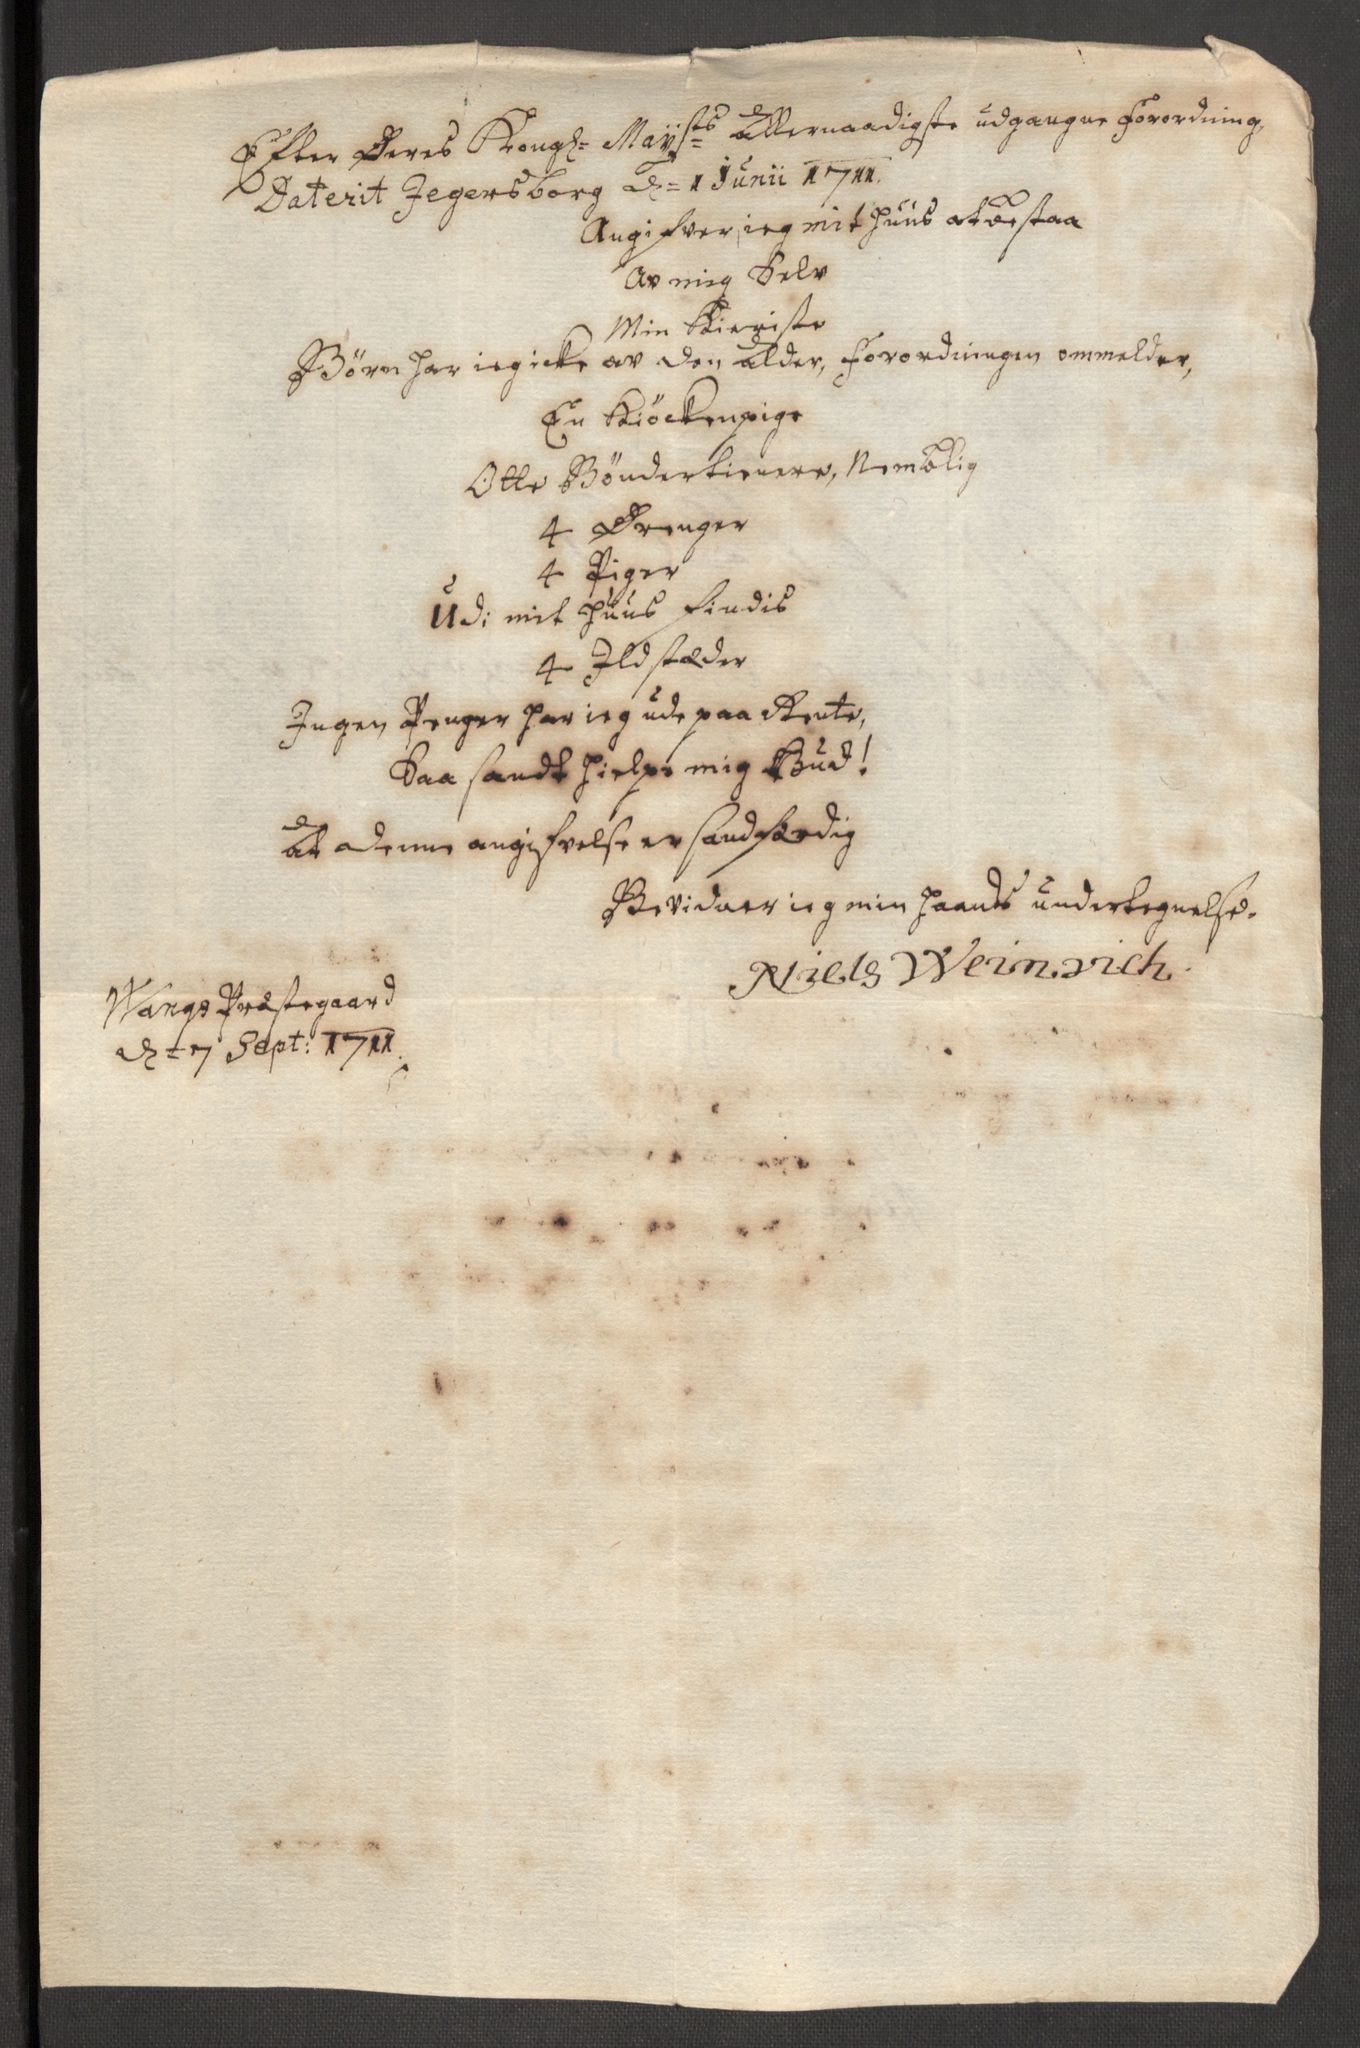 Efter Deres Kongl= Maÿsts allernaadigste udgangne Forordning,
Daterit Jegersborg d= 1 Junii 1711.
Angifver ieg mit huus at bestaa
Av mig Selv
Min Kieriste
Börn har ieg icke av den alder, Forordningen ommelder,
En Kiöckenpige
Otte Bönder tienere, Nemblig
4 Drenger
4 Piger
Udi mit huus findis
4 Ildstæder
Ingen Penger har ieg ude paa Rente,
Saa sandt hielpe mig Gud!
at denne angifvelse er sandfærdig
Bevidner ieg min haands undertegnelse.
Niels Weinvich.
Wangs Præstegaard
d= 7 Sept: 1711.